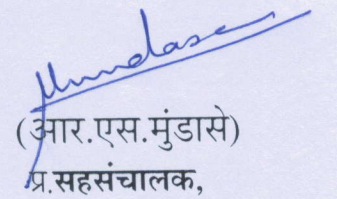 Mundase
(आर.एस.मुंडासे)
प्र.सहसंचालक,